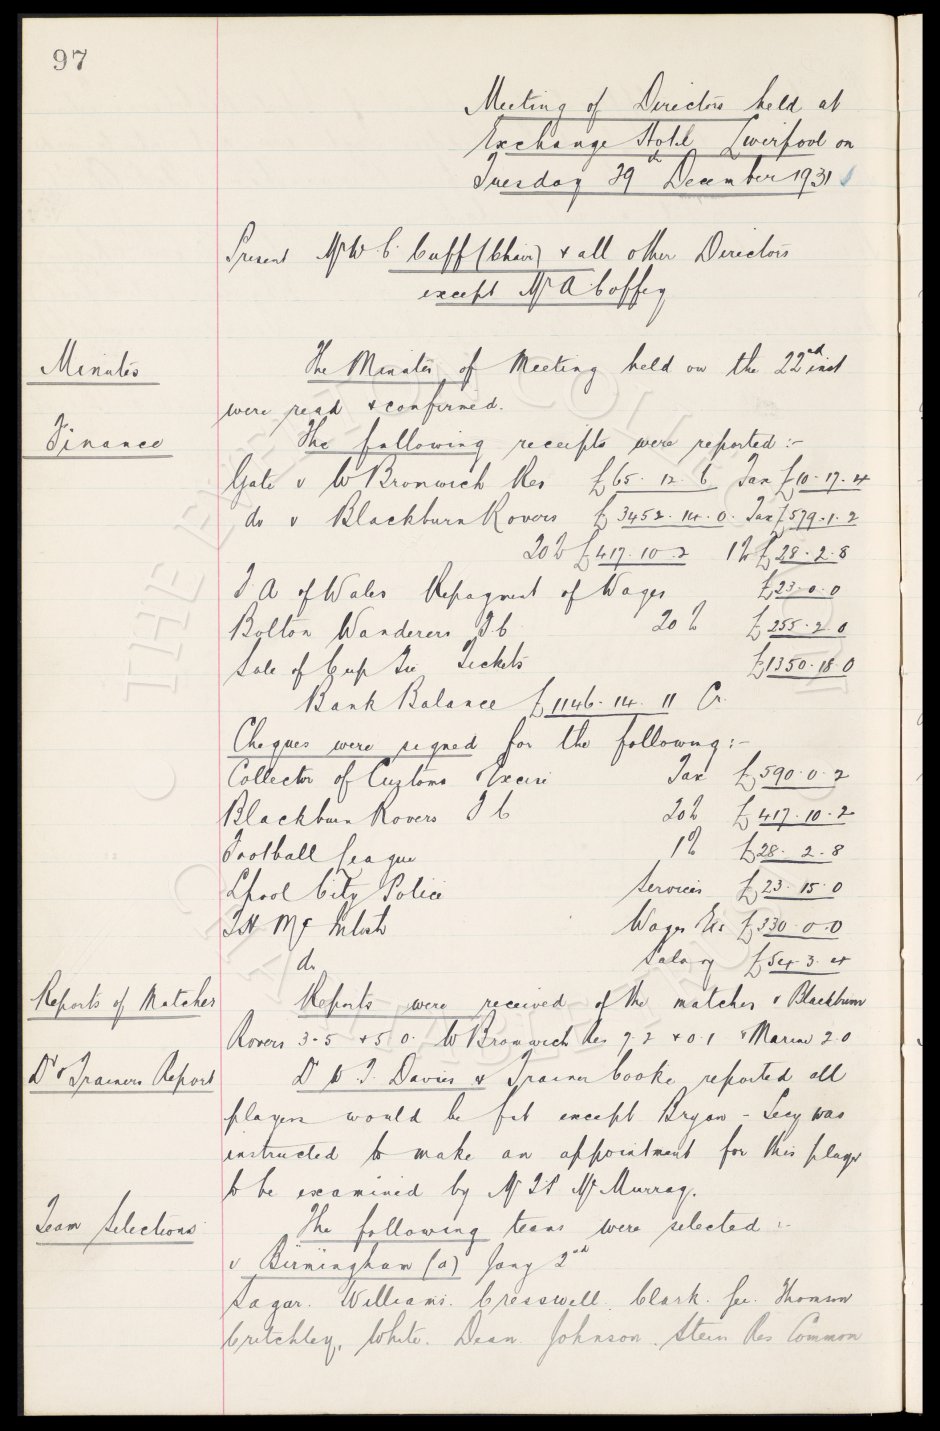 97
Meeting of Directors held at
Exchange Hotel Liverpool on
Tuesday 29th December 1931
Present Mr W C Cuff (Chair) & all other Directors
except Mr A Coffey
Minutes The Minutes of Meeting held on the 22nd inst
were read & confirmed.
Finance The following receipts were reported :-
Gate v W Bromwich Res £65. 12. 6 Tax £10. 17. 4
do v Blackburn Rovers £3452. 14. 0. Tax £579. 1. 2
20% £417. 10. 2 1% £28. 2. 8
F. A of Wales Repayment of Wages £23. 0. 0
Bolton Wanderers F. C 20% £255. 2. 0
Sale of Cup Tie Tickets £1350. 18. 0
Bank Balance £1146. 14. 11 Cr.
Cheques were signed for the following :-
Collector of Customs & Excise Tax £590. 0. 2
Blackburn Rovers F C 20% £417. 10. 2
Football League 1% £28. 2. 8
Lpool City Police Services £23. 15. 0
T H Mc Intosh Wages Etc £330. 0. 0
do Salary £54. 3. 4
Reports of Matches Reports were received of the matches v Blackburn
Rovers 3-5 & 5.0. W Bromwich Res 7.2 & 0.1 & Marine 2.0
Dr & Trainers Report Dr W. T. Davies & Trainer Cooke reported all
players would be fit except Bryan - Secy was
instructed to make an appointment for this player
to be examined by Mr T P McMurray.
Team Selections The following teams were selected :-
v Birmingham (a) Jany 2nd
Sagar. Williams. Cresswell. Clark. Gee. Thomson
Critchley. White. Dean. Johnson. Stein Res Common
© THE EVERTON COLLECTION CHARITABLE TRUST